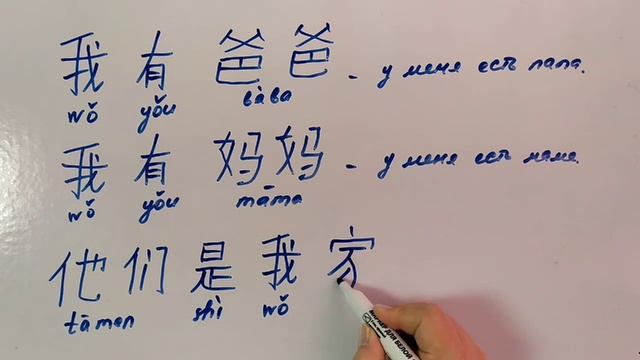 我有爸爸 - у меня есть папа.
wǒ yǒu bàba
我有妈妈 - у меня есть мама.
wǒ yǒu māma
他们是我家
tāmen shì wǒ
МАРКЕР ДЛЯ БЕЛОЙ